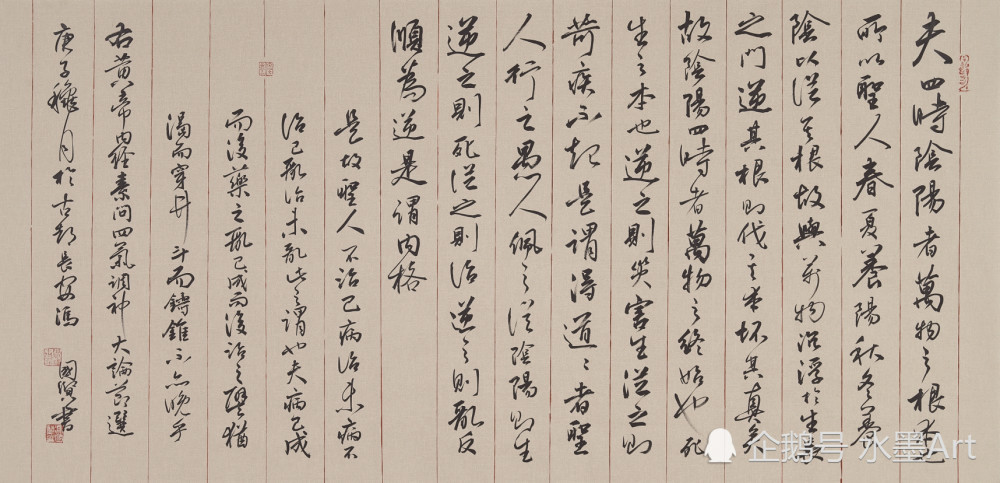 夫四時陰陽者萬物之根本也
所以聖人春夏養陽秋冬養
陰以從其根故與萬物沉浮於生長
之門逆其根則伐其本壞其真矣
故陰陽四時者萬物之終始也死
生之本也逆之則災害生從之則
苛疾不起是謂得道〻者聖
人行之愚人佩之從陰陽則生
逆之則死從之則治逆之則亂反
順為逆是謂內格
是故聖人不治已病治未病不
治已亂治未亂此之謂也夫病已成
而後藥之亂已成而後治之譬猶
渴而穿井斗而鑄錐不亦晚乎
右黃帝內經素問四氣調神大論節選
庚子穐月於古都長安馮
國賢書
企鹅号 水墨Art